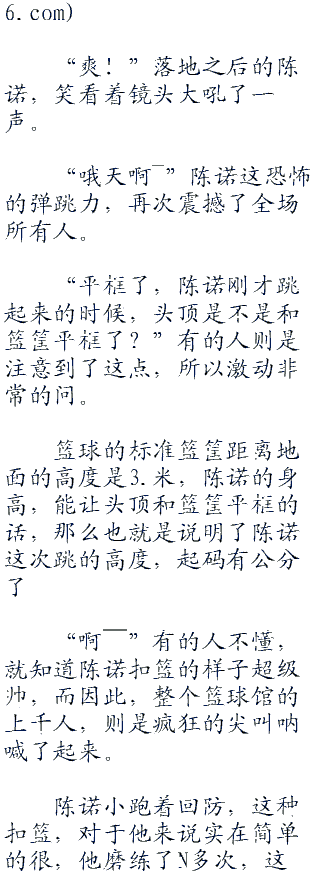 6.com)
“爽！”落地之后的陈
诺，笑看着镜头大吼了一
声。
“哦天啊‾”陈诺这恐怖
的弹跳力，再次震撼了全场
所有人。
“平框了，陈诺刚才跳
起来的时候，头顶是不是和
篮筐平框了？”有的人则是
注意到了这点，所以激动非
常的问。
篮球的标准篮筐距离地
面的高度是3.米，陈诺的身
高，能让头顶和篮筐平框的
话，那么也就是说明了陈诺
这次跳的高度，起码有公分
了
“啊‾‾”有的人不懂，
就知道陈诺扣篮的样子超级
帅，而因此，整个篮球馆的
上千人，则是疯狂的尖叫呐
喊了起来。
陈诺小跑着回防，这种
扣篮，对于他来说实在简单
的很，他磨练了N多次，这